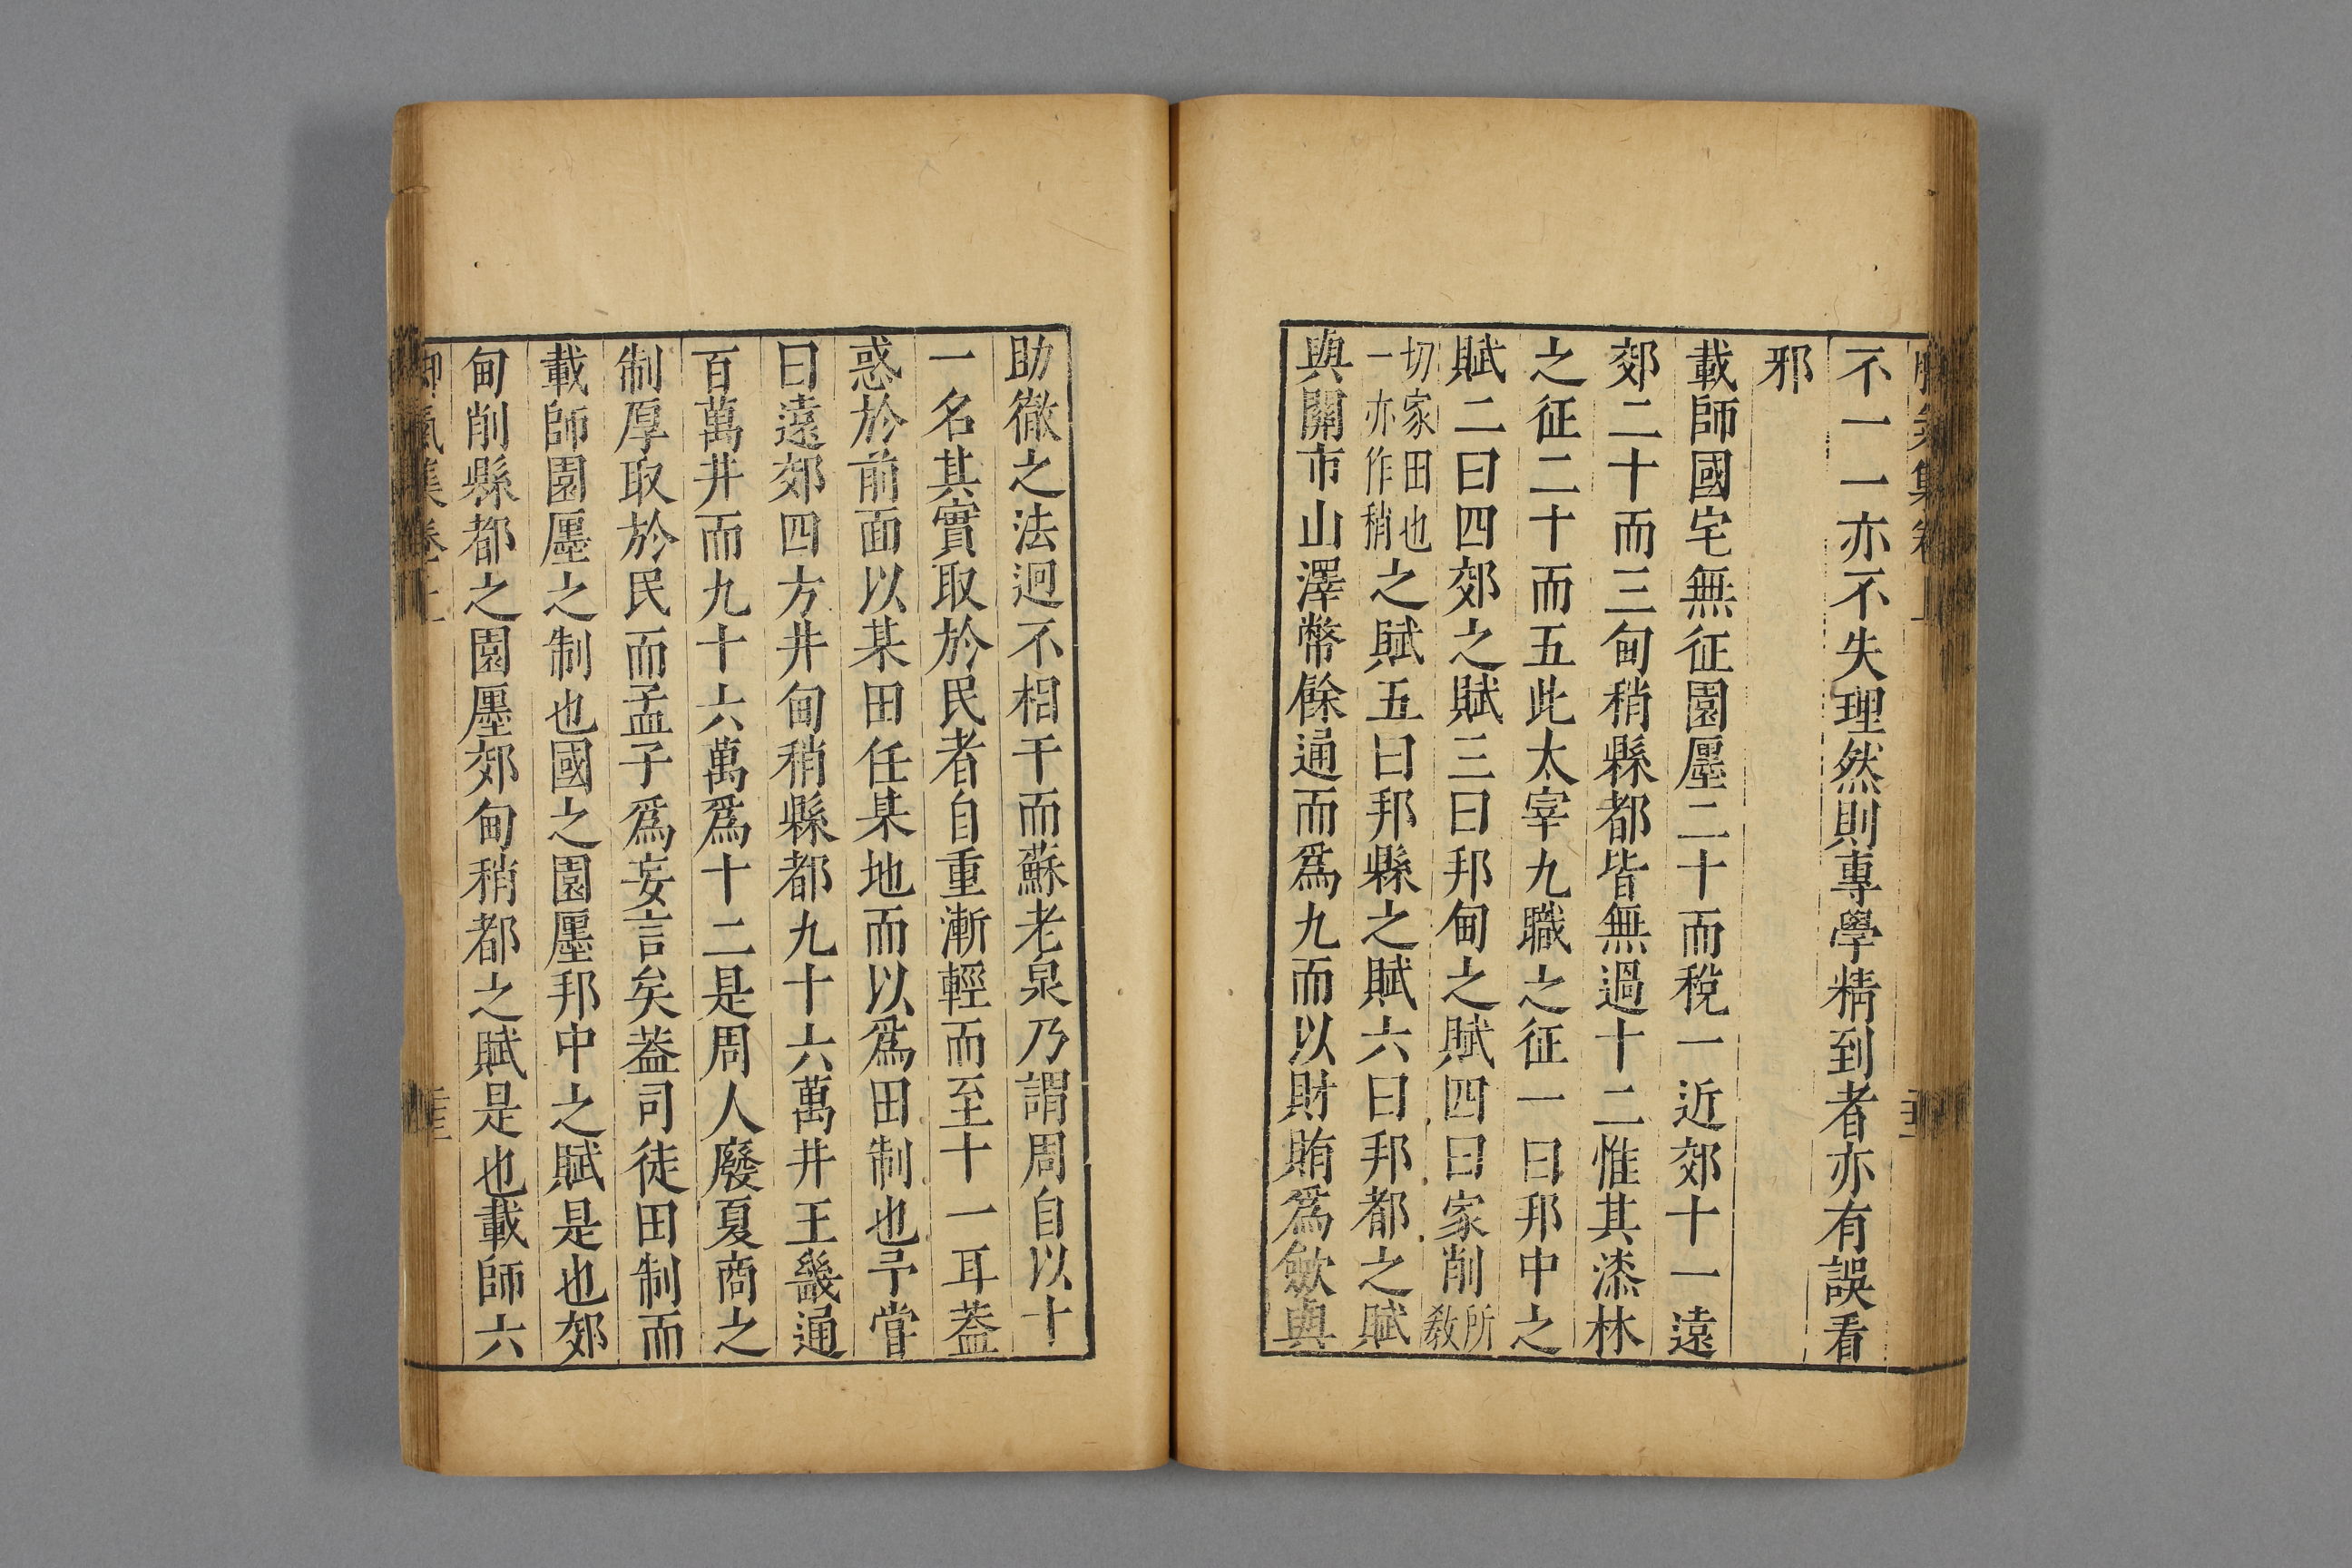 不一一亦不失理然則專學精到者亦有誤看
邪
載師國宅無征園廛二十而稅一近郊十一遠
郊二十而三甸稍縣都皆無過十二惟其漆林
之征二十而五此太宰九職之征一曰邦中之
賦二曰四郊之賦三曰邦甸之賦四曰家削所敎
切家田也一亦作稍之賦五曰邦縣之賦六曰邦都之賦
與關市山澤幣餘通而爲九而以財賄爲斂與
助徹之法迥不相干而蘇老泉乃謂周自以十
一名其實取於民者自重漸輕而至十一耳蓋
惑於前面以某田任某地而以爲田制也予嘗
曰遠郊四方井甸稍縣都九十六萬井王畿通
百萬井而九十六萬爲十二是周人廢夏商之
制厚取於民而孟子爲妄言矣蓋司徒田制而
載師園廛之制也國之園廛邦中之賦是也郊
甸削縣都之園廛郊甸稍都之賦是也載師六
脚氣集卷上